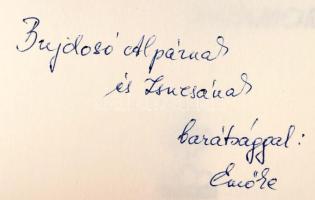 Bujdosó Alpárnak
és Zsuzsának
barátsággal:
Emőke